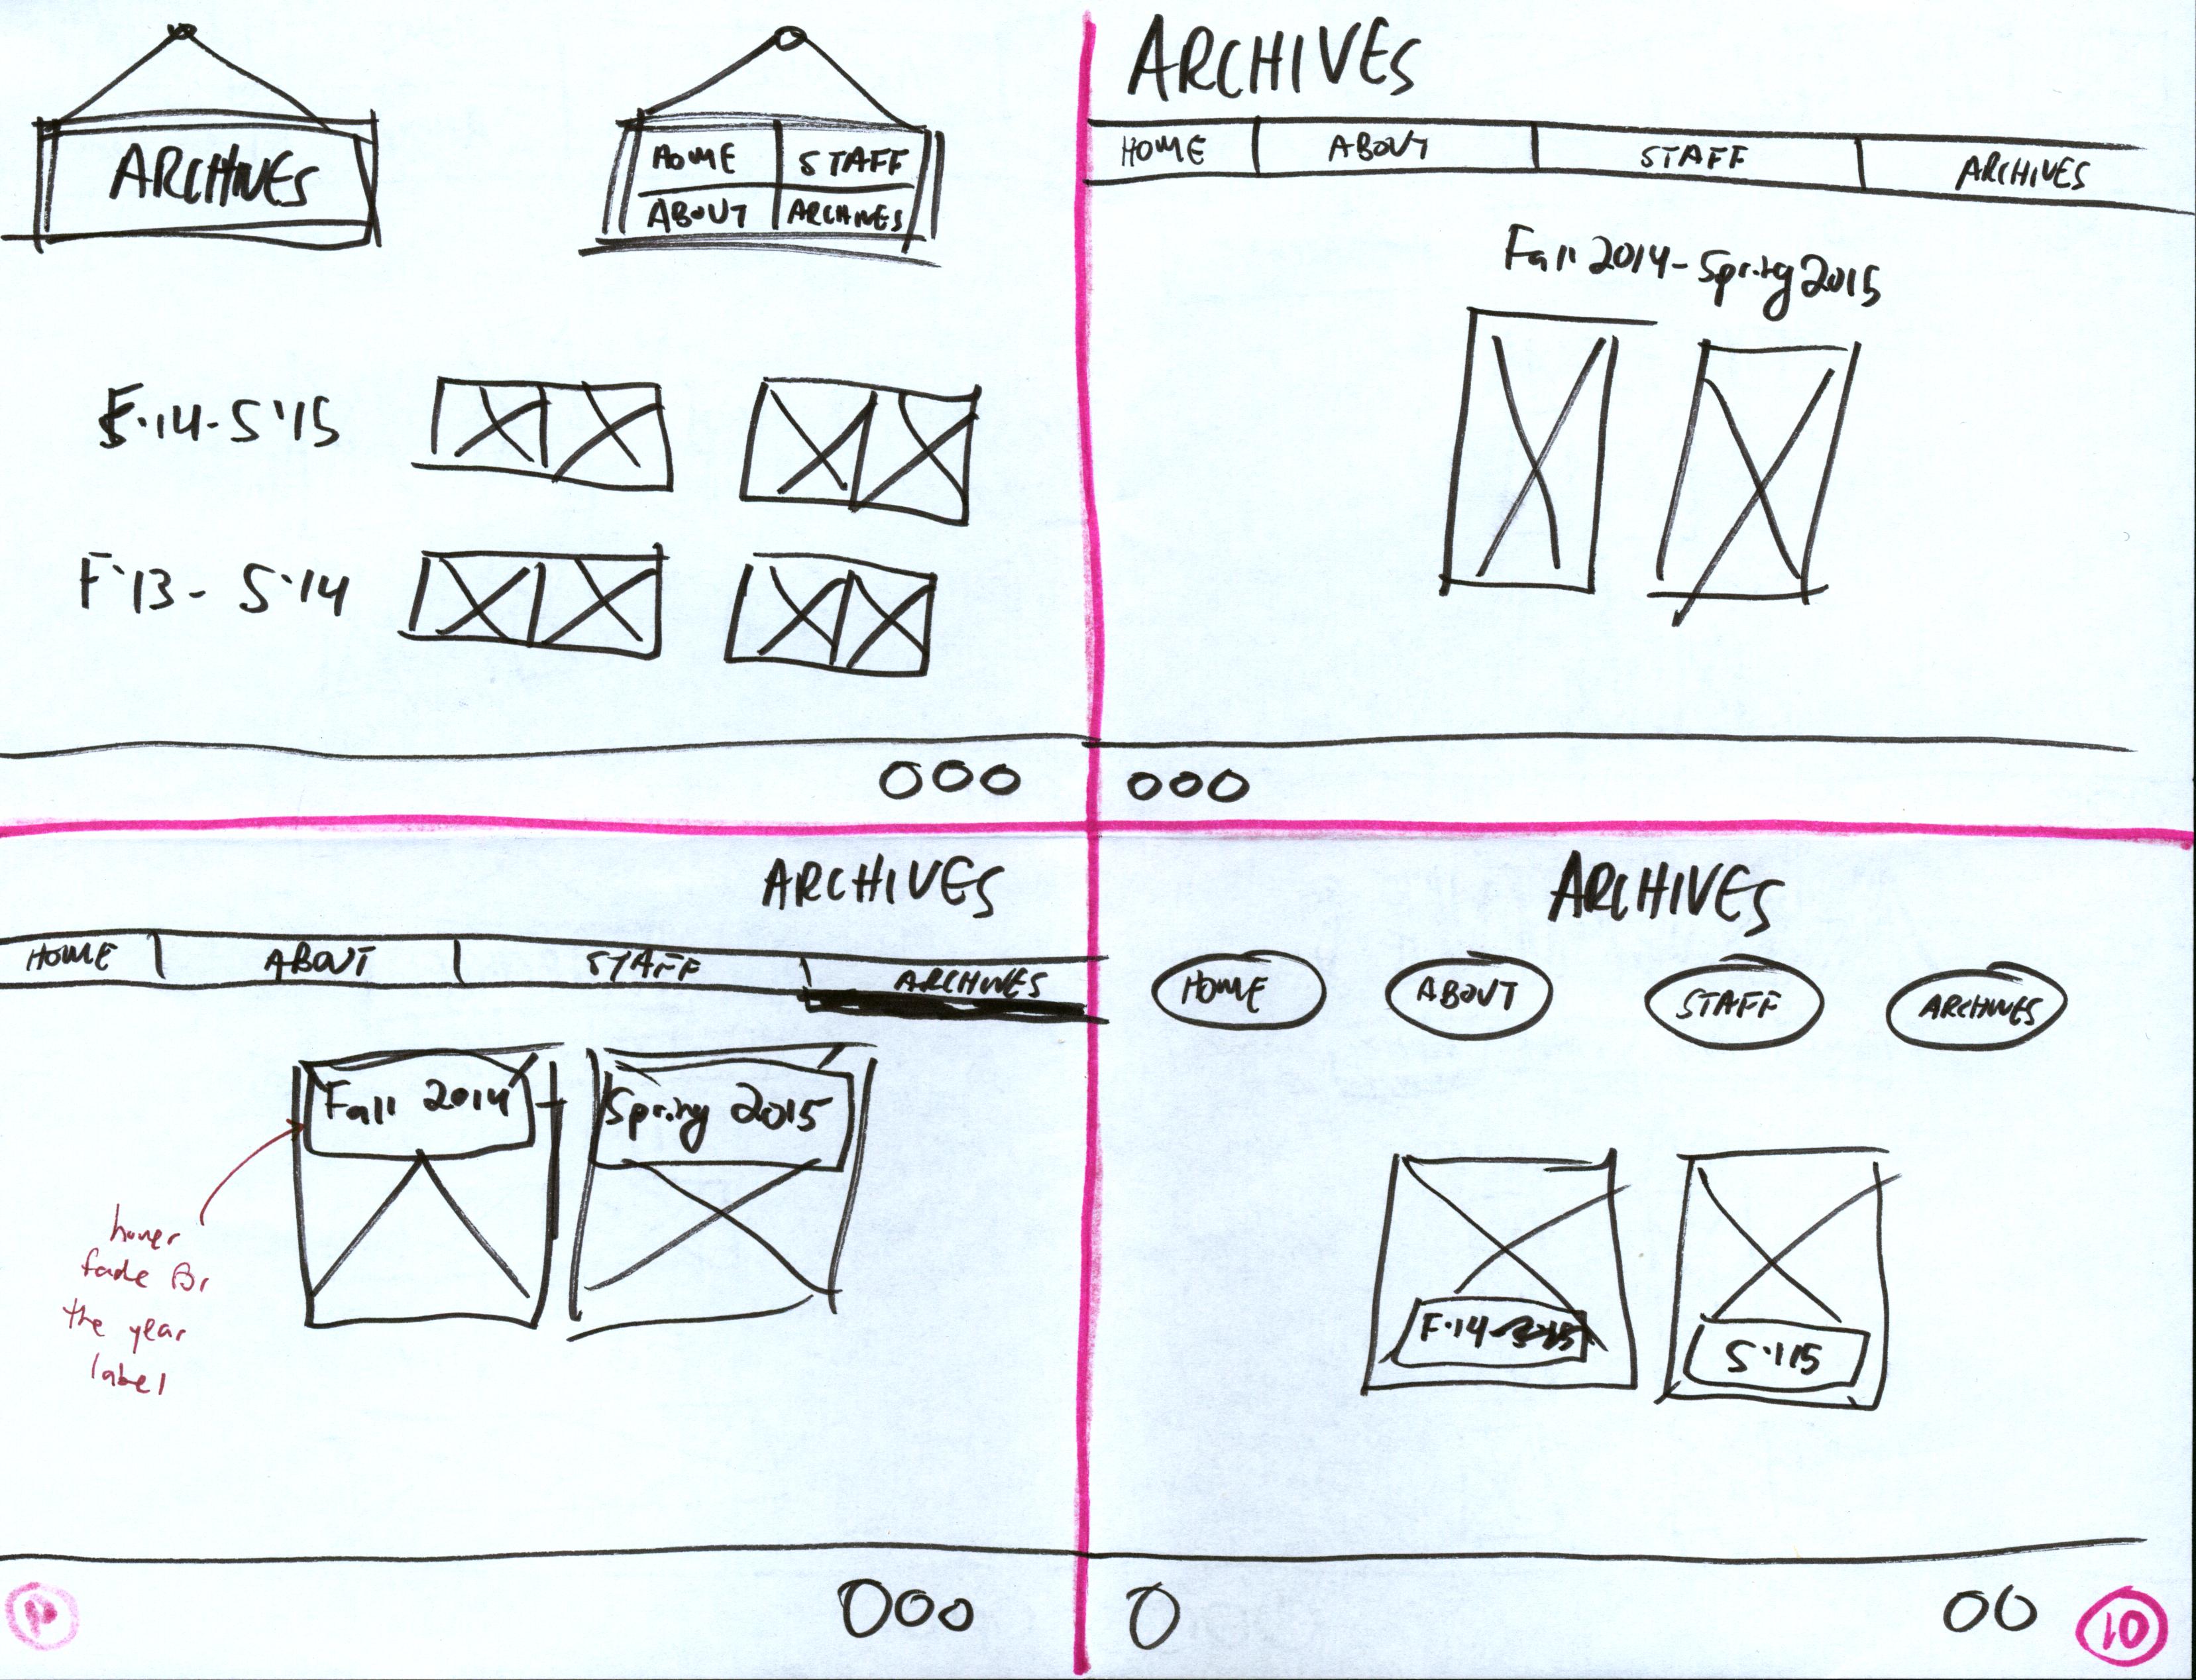 ARCHIVES
HOME STAFF
ABOUT ARCHIVES
F'14-S'15
F'13- S'14
ARCHIVES
HOME ABOUT STAFF ARCHIVES
Fall 2014-Spring 2015
ARCHIVES
HOME ABOUT STAFF ARCHIVES
Fall 2014 - Spring 2015
hover
fade for
the year
label
ARCHIVES
HOME ABOUT STAFF ARCHIVES
F'14
S'15
10